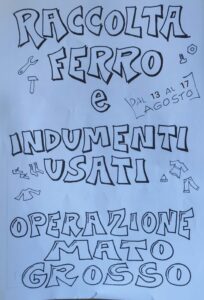 RACCOLTA
FERRO
e
DAL 13 AL 17
AGOSTO
INDUMENTI
USATI
OPERAZIONE
MATO
GROSSO